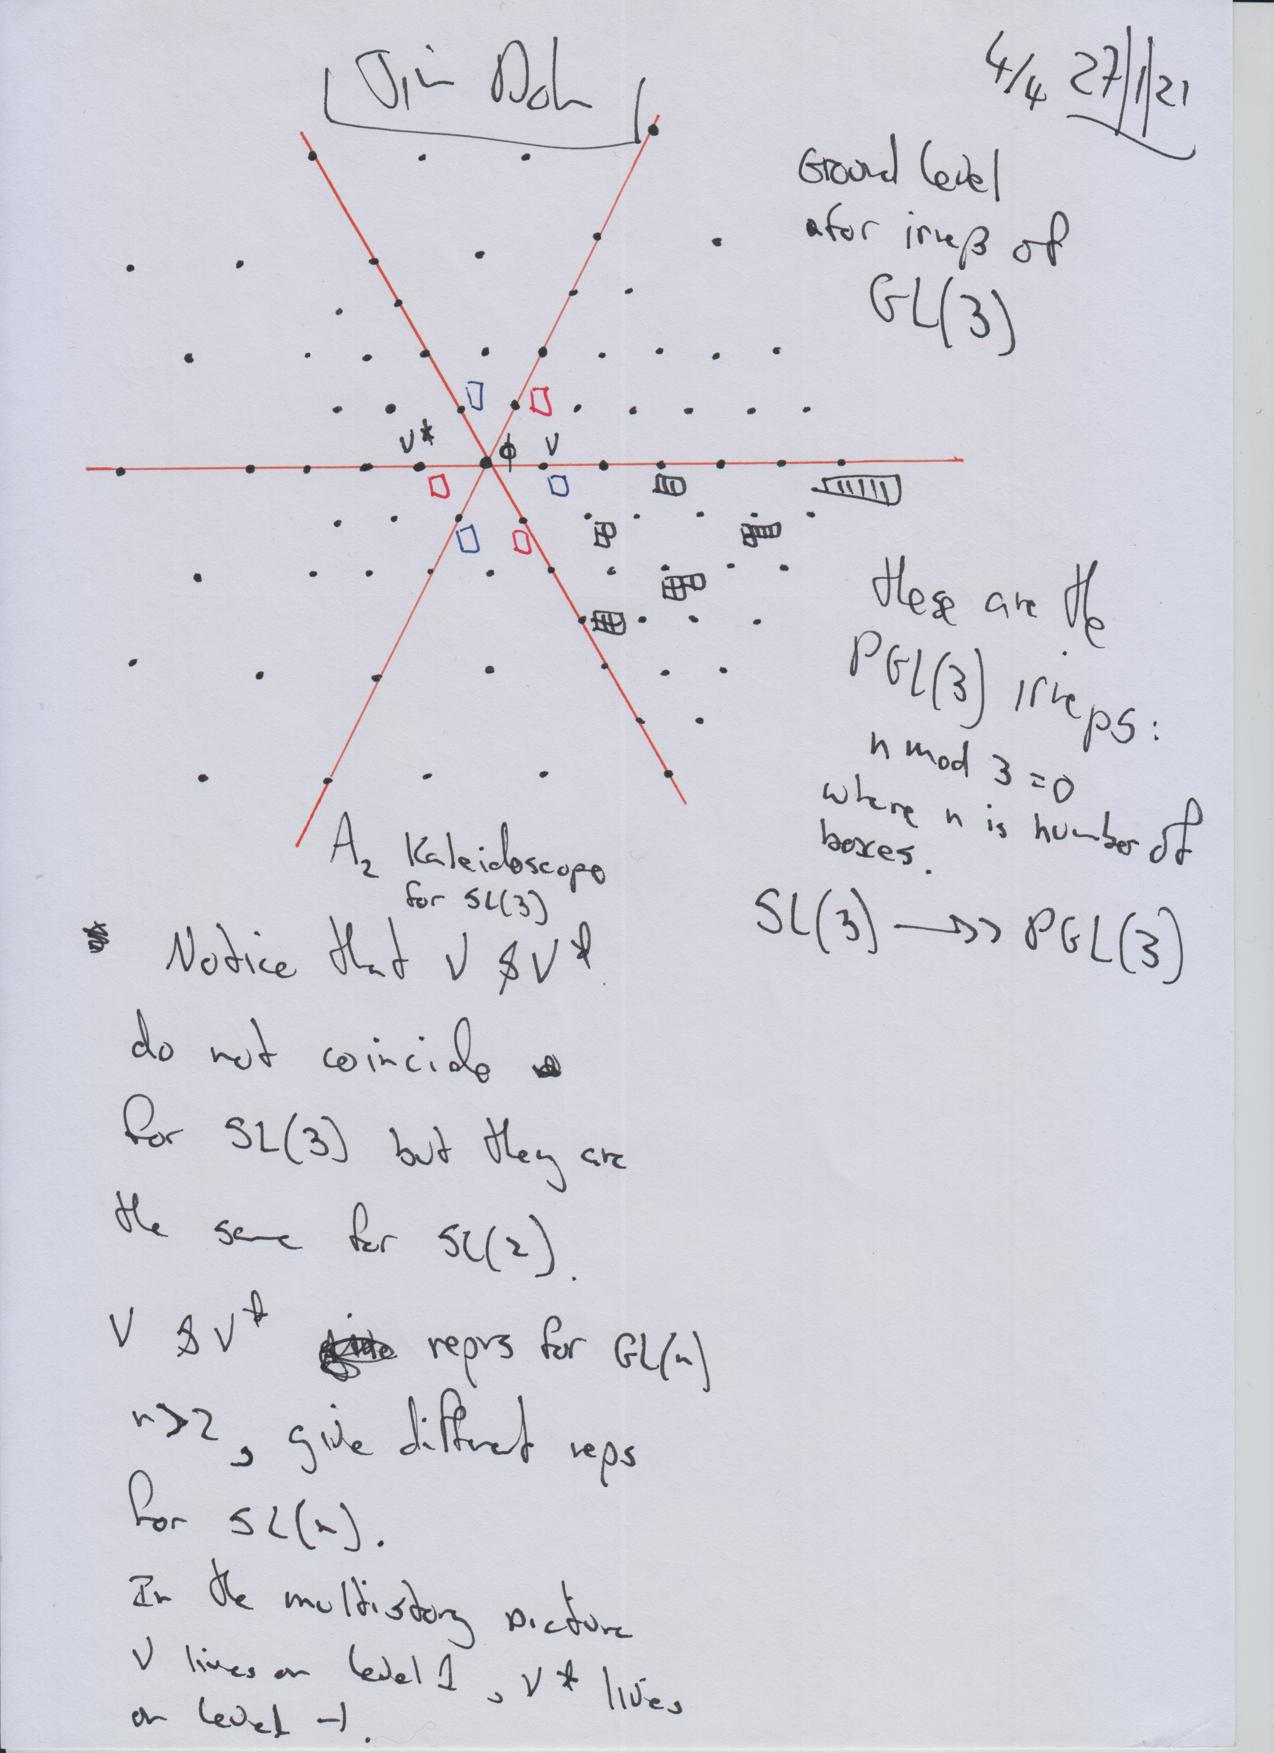 Jim Doh
4/4 27/1/21
Ground level
for irreps of
GL(3)
V* ϕ V
these are the
PGL(3) irreps:
n mod 3 = 0
where n is number of
boxes.
SL(3) ->> PGL(3)
A2 Kaleidoscope
for SL(3)
Notice that V & V*
do not coincide
for SL(3) but they are
the same for SL(2).
V & V* reprs for GL(n)
n>2, give different reps
for SL(n).
In the multistory picture
V lives on level 1, V* lives
on level -1.